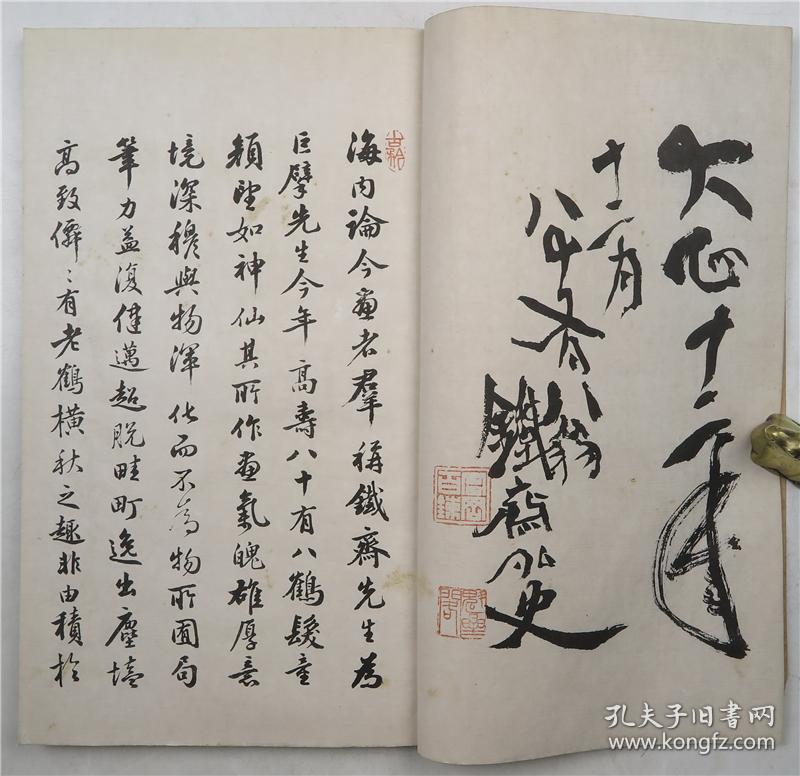 大正十二年
十一月
八十有八翁
鐵斎外史
海内論今畫者羣稱鐵齋先生為
巨擘先生今年高壽八十有八鶴髮童
顏望如神仙其所作畫氣魄雄厚意
境深穆與物渾化而不為物所囿局
筆力益復健邁超脫畦町逸出塵壒
高致僊〻有老鶴橫秋之趣非由積於
孔夫子旧书网
www.kongfz.com